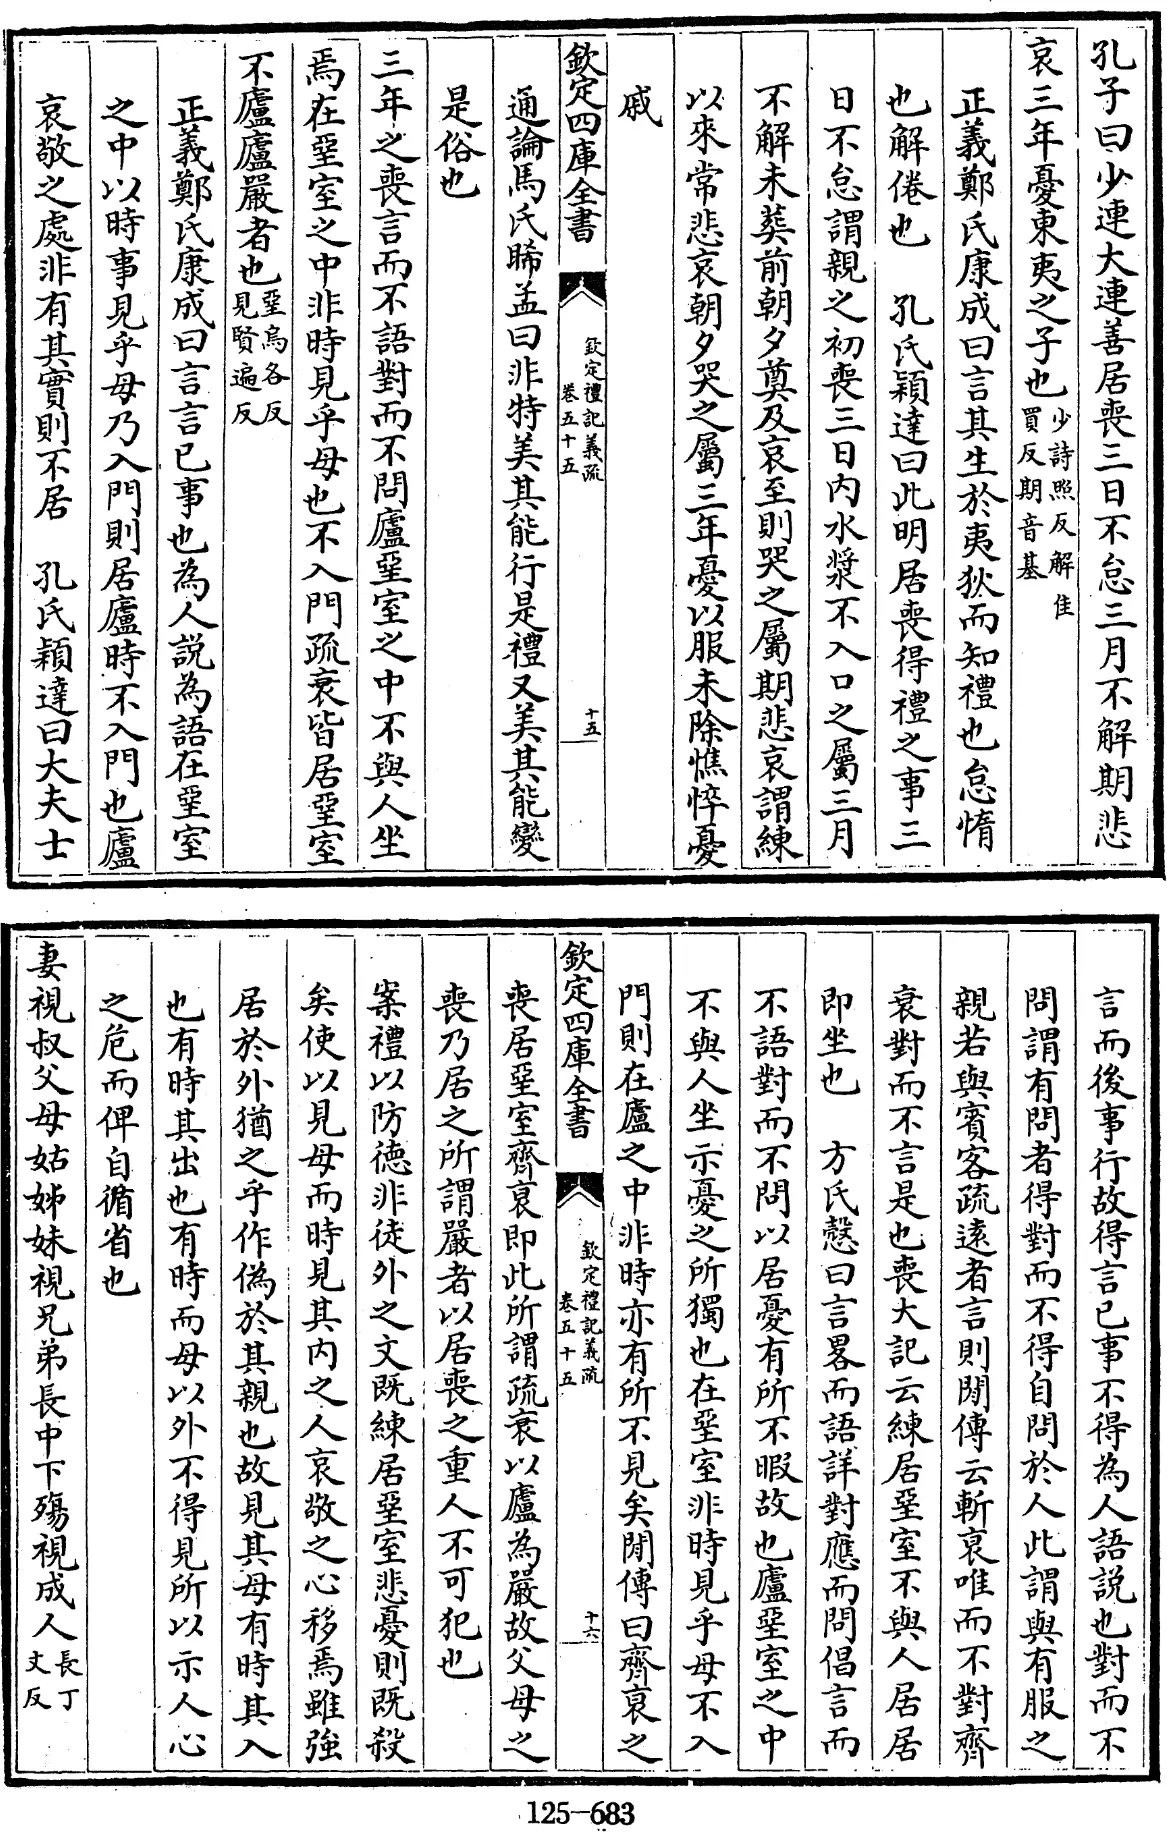 孔子曰少連大連善居喪三日不怠三月不解期悲
哀三年憂東夷之子也少詩照反解佳
買反期音基
正義鄭氏康成曰言其生於夷狄而知禮也怠惰
也解倦也　孔氏穎達曰此明居喪得禮之事三
日不怠謂親之初喪三日內水漿不入口之屬三月
不解未葬前朝夕奠及哀至則哭之屬期悲哀謂練
以來常悲哀朝夕哭之屬三年憂以服未除憔悴憂
戚
欽定四庫全書
欽定禮記義疏
卷五十五
十五
通論馬氏晞孟曰非特美其能行是禮又美其能變
是俗也
三年之喪言而不語對而不問廬堊室之中不與人坐
焉在堊室之中非時見乎母也不入門疏衰皆居堊室
不廬廬嚴者也堊烏各反
見賢遍反
正義鄭氏康成曰言言已事也為人説為語在堊室
之中以時事見乎母乃入門則居廬時不入門也廬
哀敬之處非有其實則不居　孔氏穎達曰大夫士
言而後事行故得言已事不得為人語説也對而不
問謂有問者得對而不得自問於人此謂與有服之
親若與賓客疏遠者言則閒傳云斬衰唯而不對齊
衰對而不言是也喪大記云練居堊室不與人居居
即坐也　方氏慤曰言畧而語詳對應而問倡言而
不語對而不問以居憂有所不暇故也廬堊室之中
不與人坐示憂之所獨也在堊室非時見乎母不入
門則在廬之中非時亦有所不見矣閒傳曰齊衰之
欽定四庫全書
欽定禮記義疏
卷五十五
十六
喪居堊室齊衰即此所謂疏衰以廬為嚴故父母之
喪乃居之所謂嚴者以居喪之重人不可犯也
案禮以防德非徒外之文既練居堊室悲憂則既殺
矣使以見母而時見其內之人哀敬之心移焉雖強
居於外猶之乎作偽於其親也故見其母有時其入
也有時其出也有時而母以外不得見所以示人心
之危而俾自循省也
妻視叔父母姑姊妹視兄弟長中下殤視成人長丁
丈反
125-683